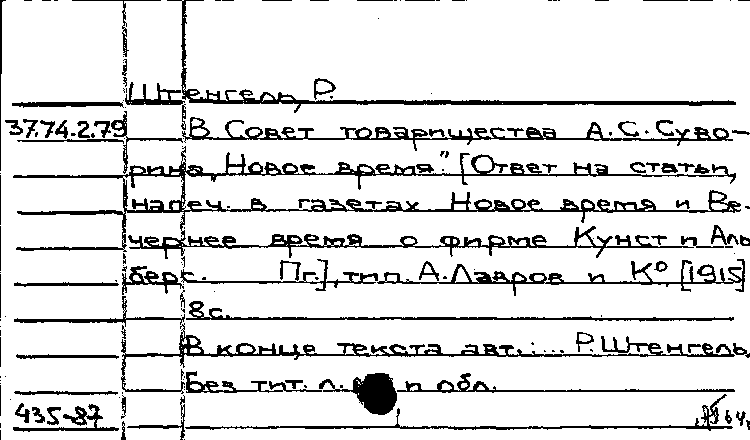 Штенгель, Р.
37.74.2.79 В Совет товарищества А.С. Суво-
рина „Новое время". [Ответ на статьи,
напеч. в газетах Новое время и Ве-
чернее время о фирме Кунст и Аль
берс. Пг.], тип. А. Лавров и К°, [1915]
8с.
В конце текста авт.: ... Р. Штенгель.
Без тит. л. и обл.
435-87